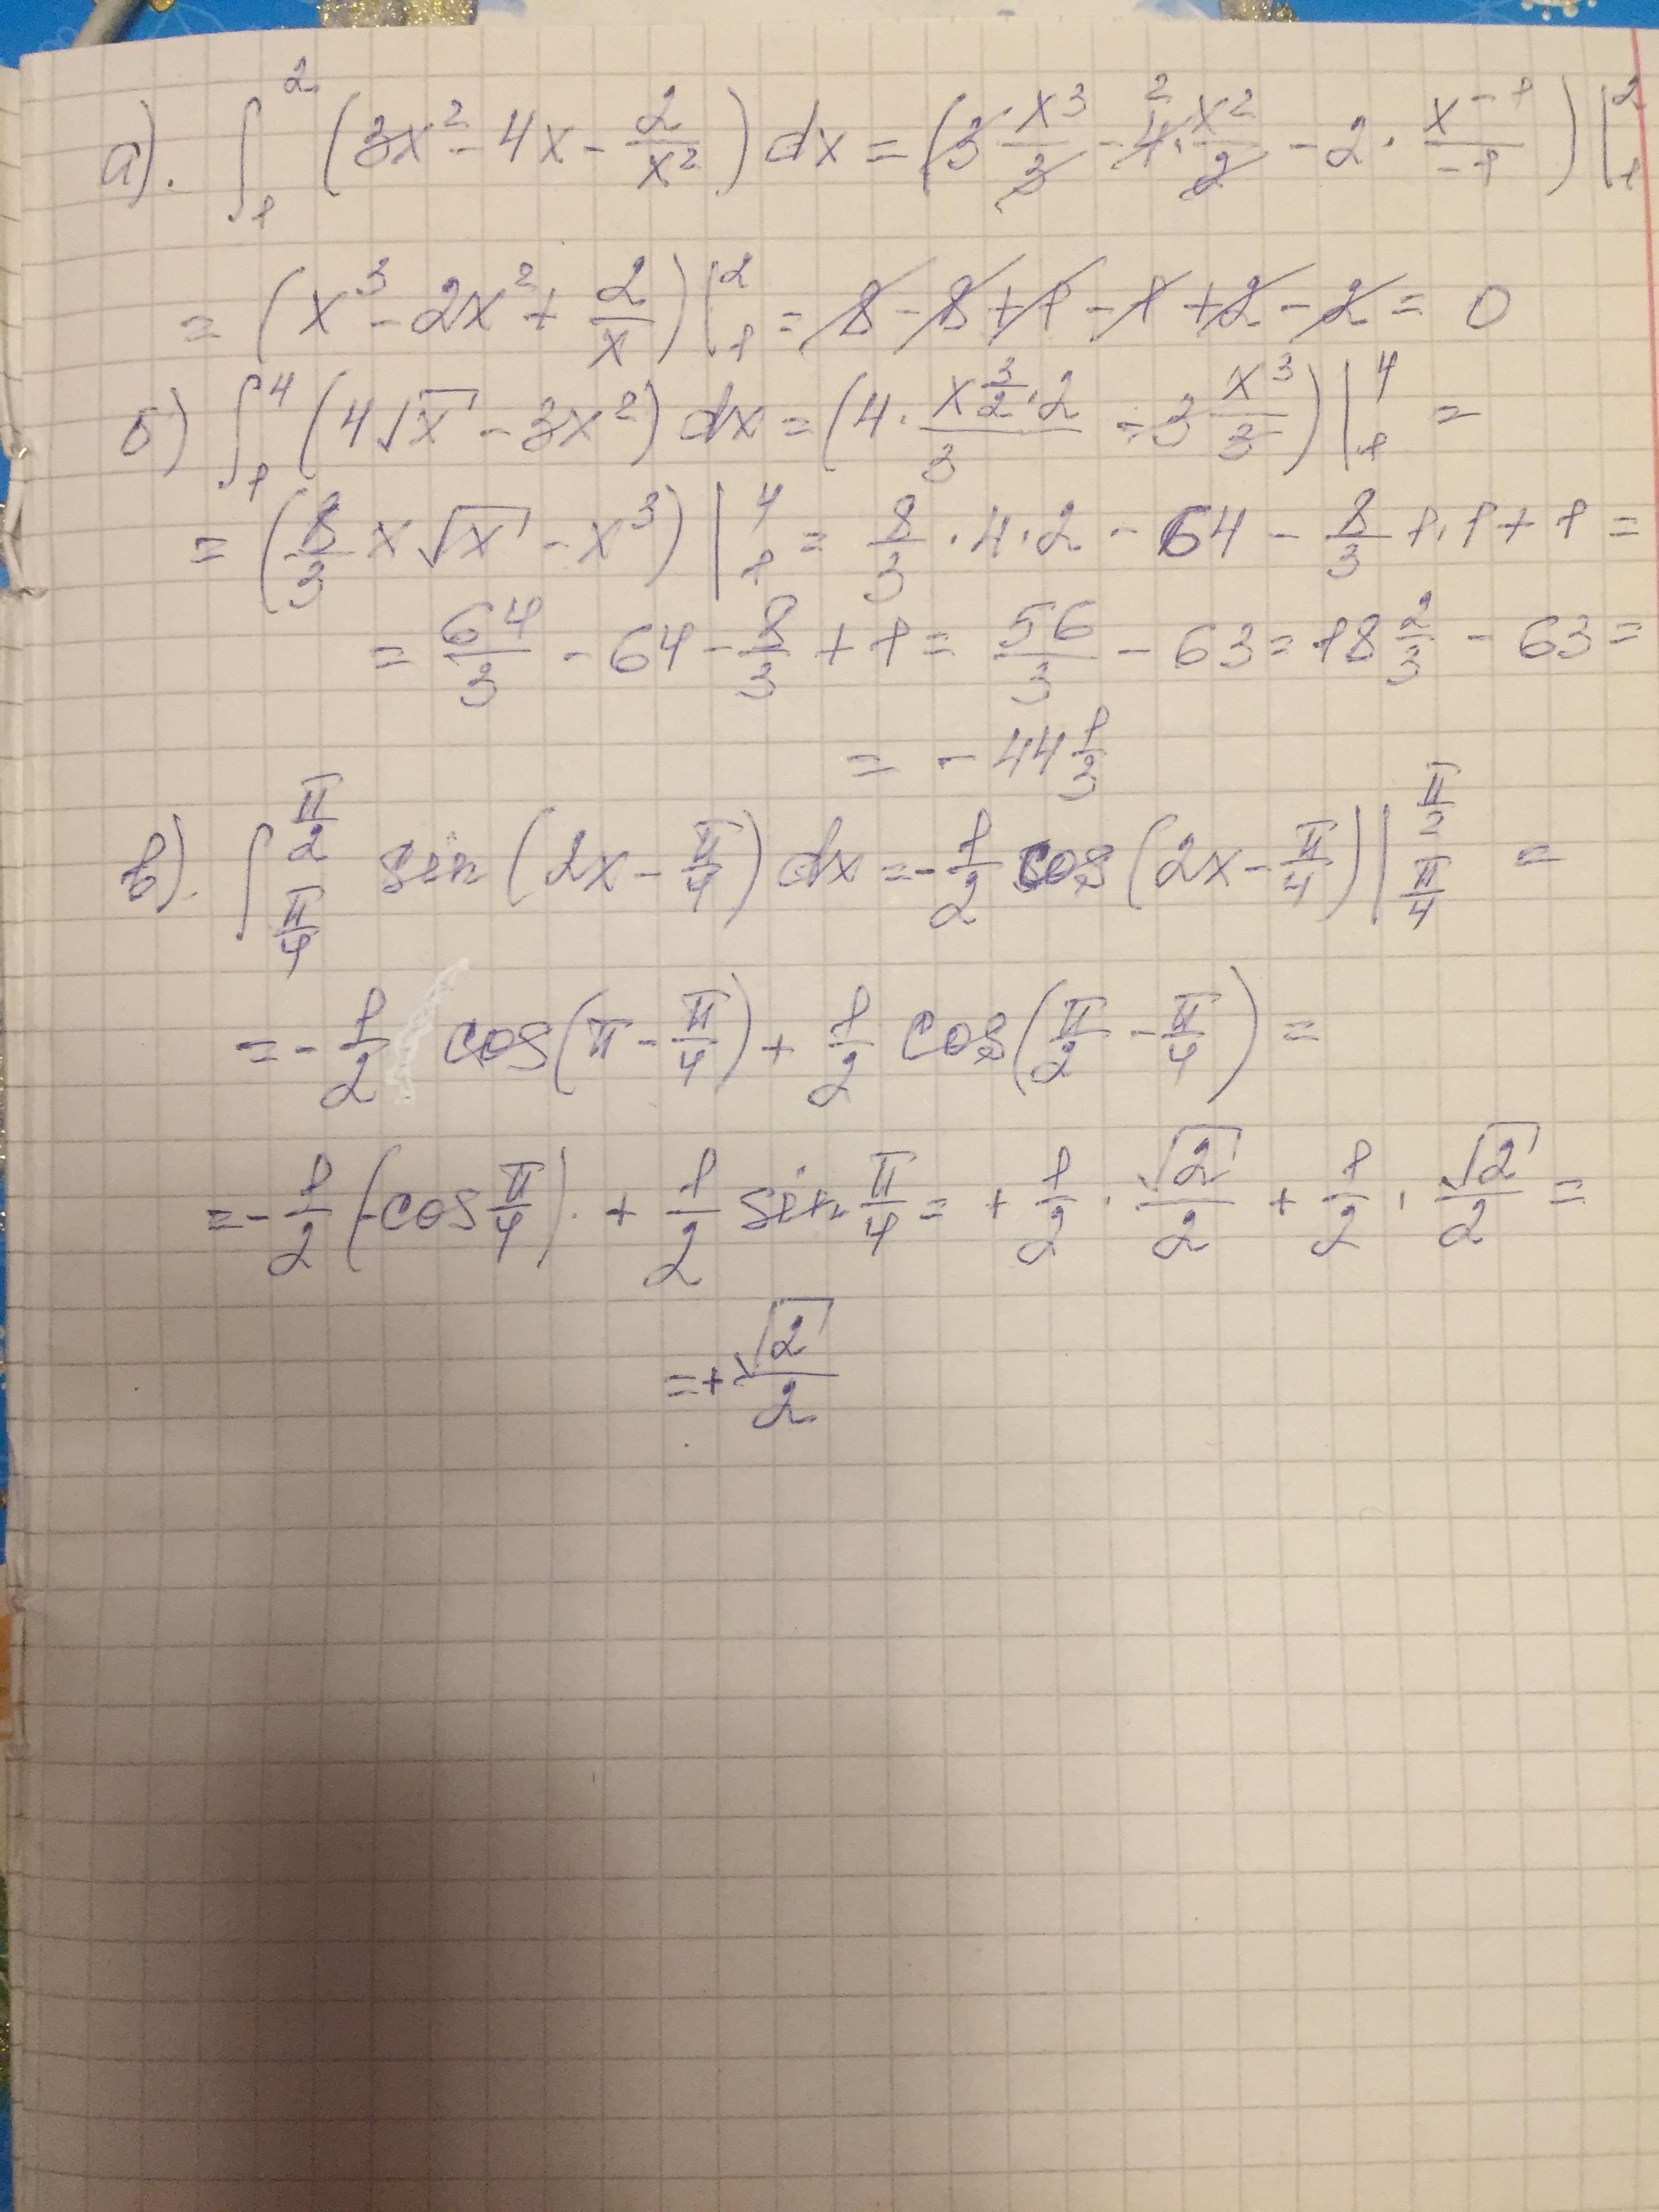 а). ∫₁² (3x² - 4x - 2/x²) dx = (3 x³/3 - 4 · x²/2 ² - 2 · x⁻¹/-1) |₁²
= (x³ - 2x² + 2/x) |₁² = 8 - 8 + 1 - 1 + 2 - 2 = 0
б) ∫₁⁴ (4√x - 3x²) dx = (4 · x^(3/2) · 2 / 3 - 3 x³/3) |₁⁴ =
= (8/3 x √x - x³) |₁⁴ = 8/3 · 4 · 2 - 64 - 8/3 1 · 1 + 1 =
= 64/3 - 64 - 8/3 + 1 = 56/3 - 63 = 18 2/3 - 63 =
= - 44 1/3
в). ∫_(π/4)^(π/2) sin (2x - π/4) dx = - 1/2 cos (2x - π/4) |_(π/4)^(π/2) =
= - 1/2 cos (π - π/4) + 1/2 cos (π/2 - π/4) =
= - 1/2 (-cos π/4) + 1/2 sin π/4 = + 1/2 · √2/2 + 1/2 · √2/2 =
= + √2/2